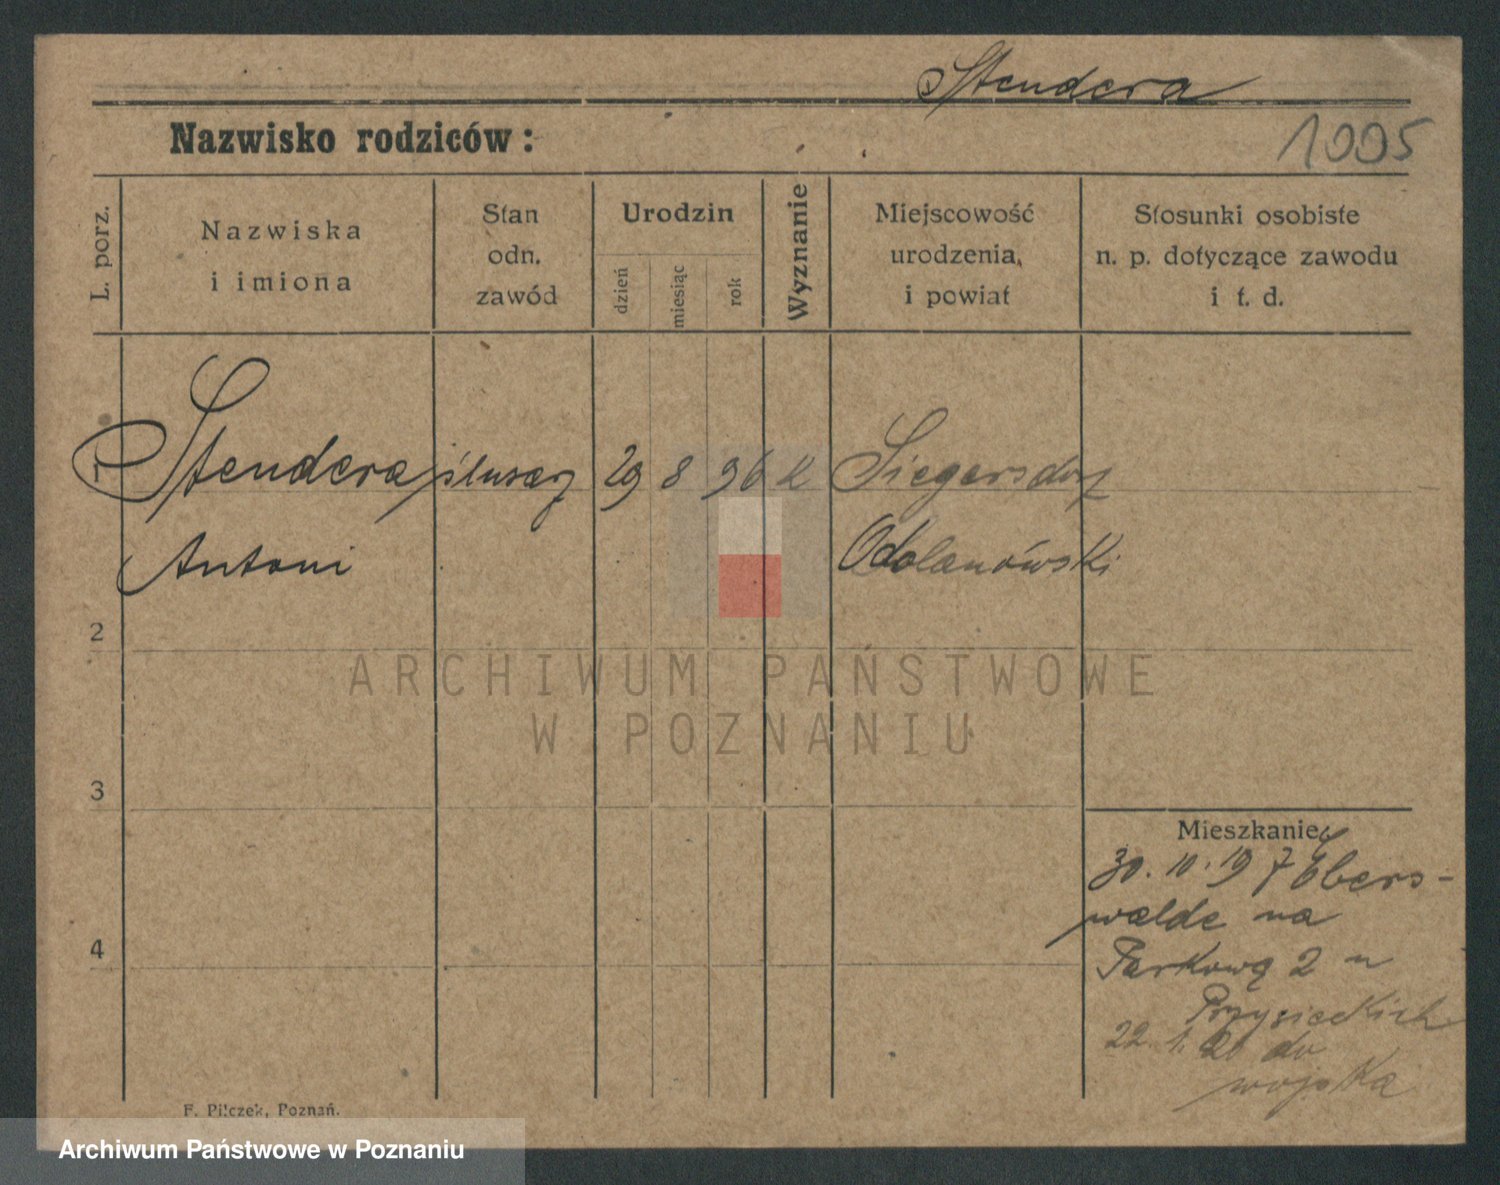 Stendera
Nazwisko rodziców:
1995
L. porz.
Nazwiska
i imiona
Stan
odn.
zawód
Urodzin
dzień
miesiąc
rok
Wyznanie
Miejscowość
urodzenia,
i powiat
Stosunki osobiste
n. p. dotyczące zawodu
i t. d.
1 Stendera ślusarz 29 8 96 K Siegersdorf
Antoni Odolanówski
2
ARCHIWUM PAŃSTWOWE
W POZNANIU
3
4
Mieszkanie
30. 10. 19 z Ebers-
walde na
Parkową 2 u
Przysieckich
22. 1. 20 do
wojska
F. Pilczek, Poznań.
Archiwum Państwowe w Poznaniu